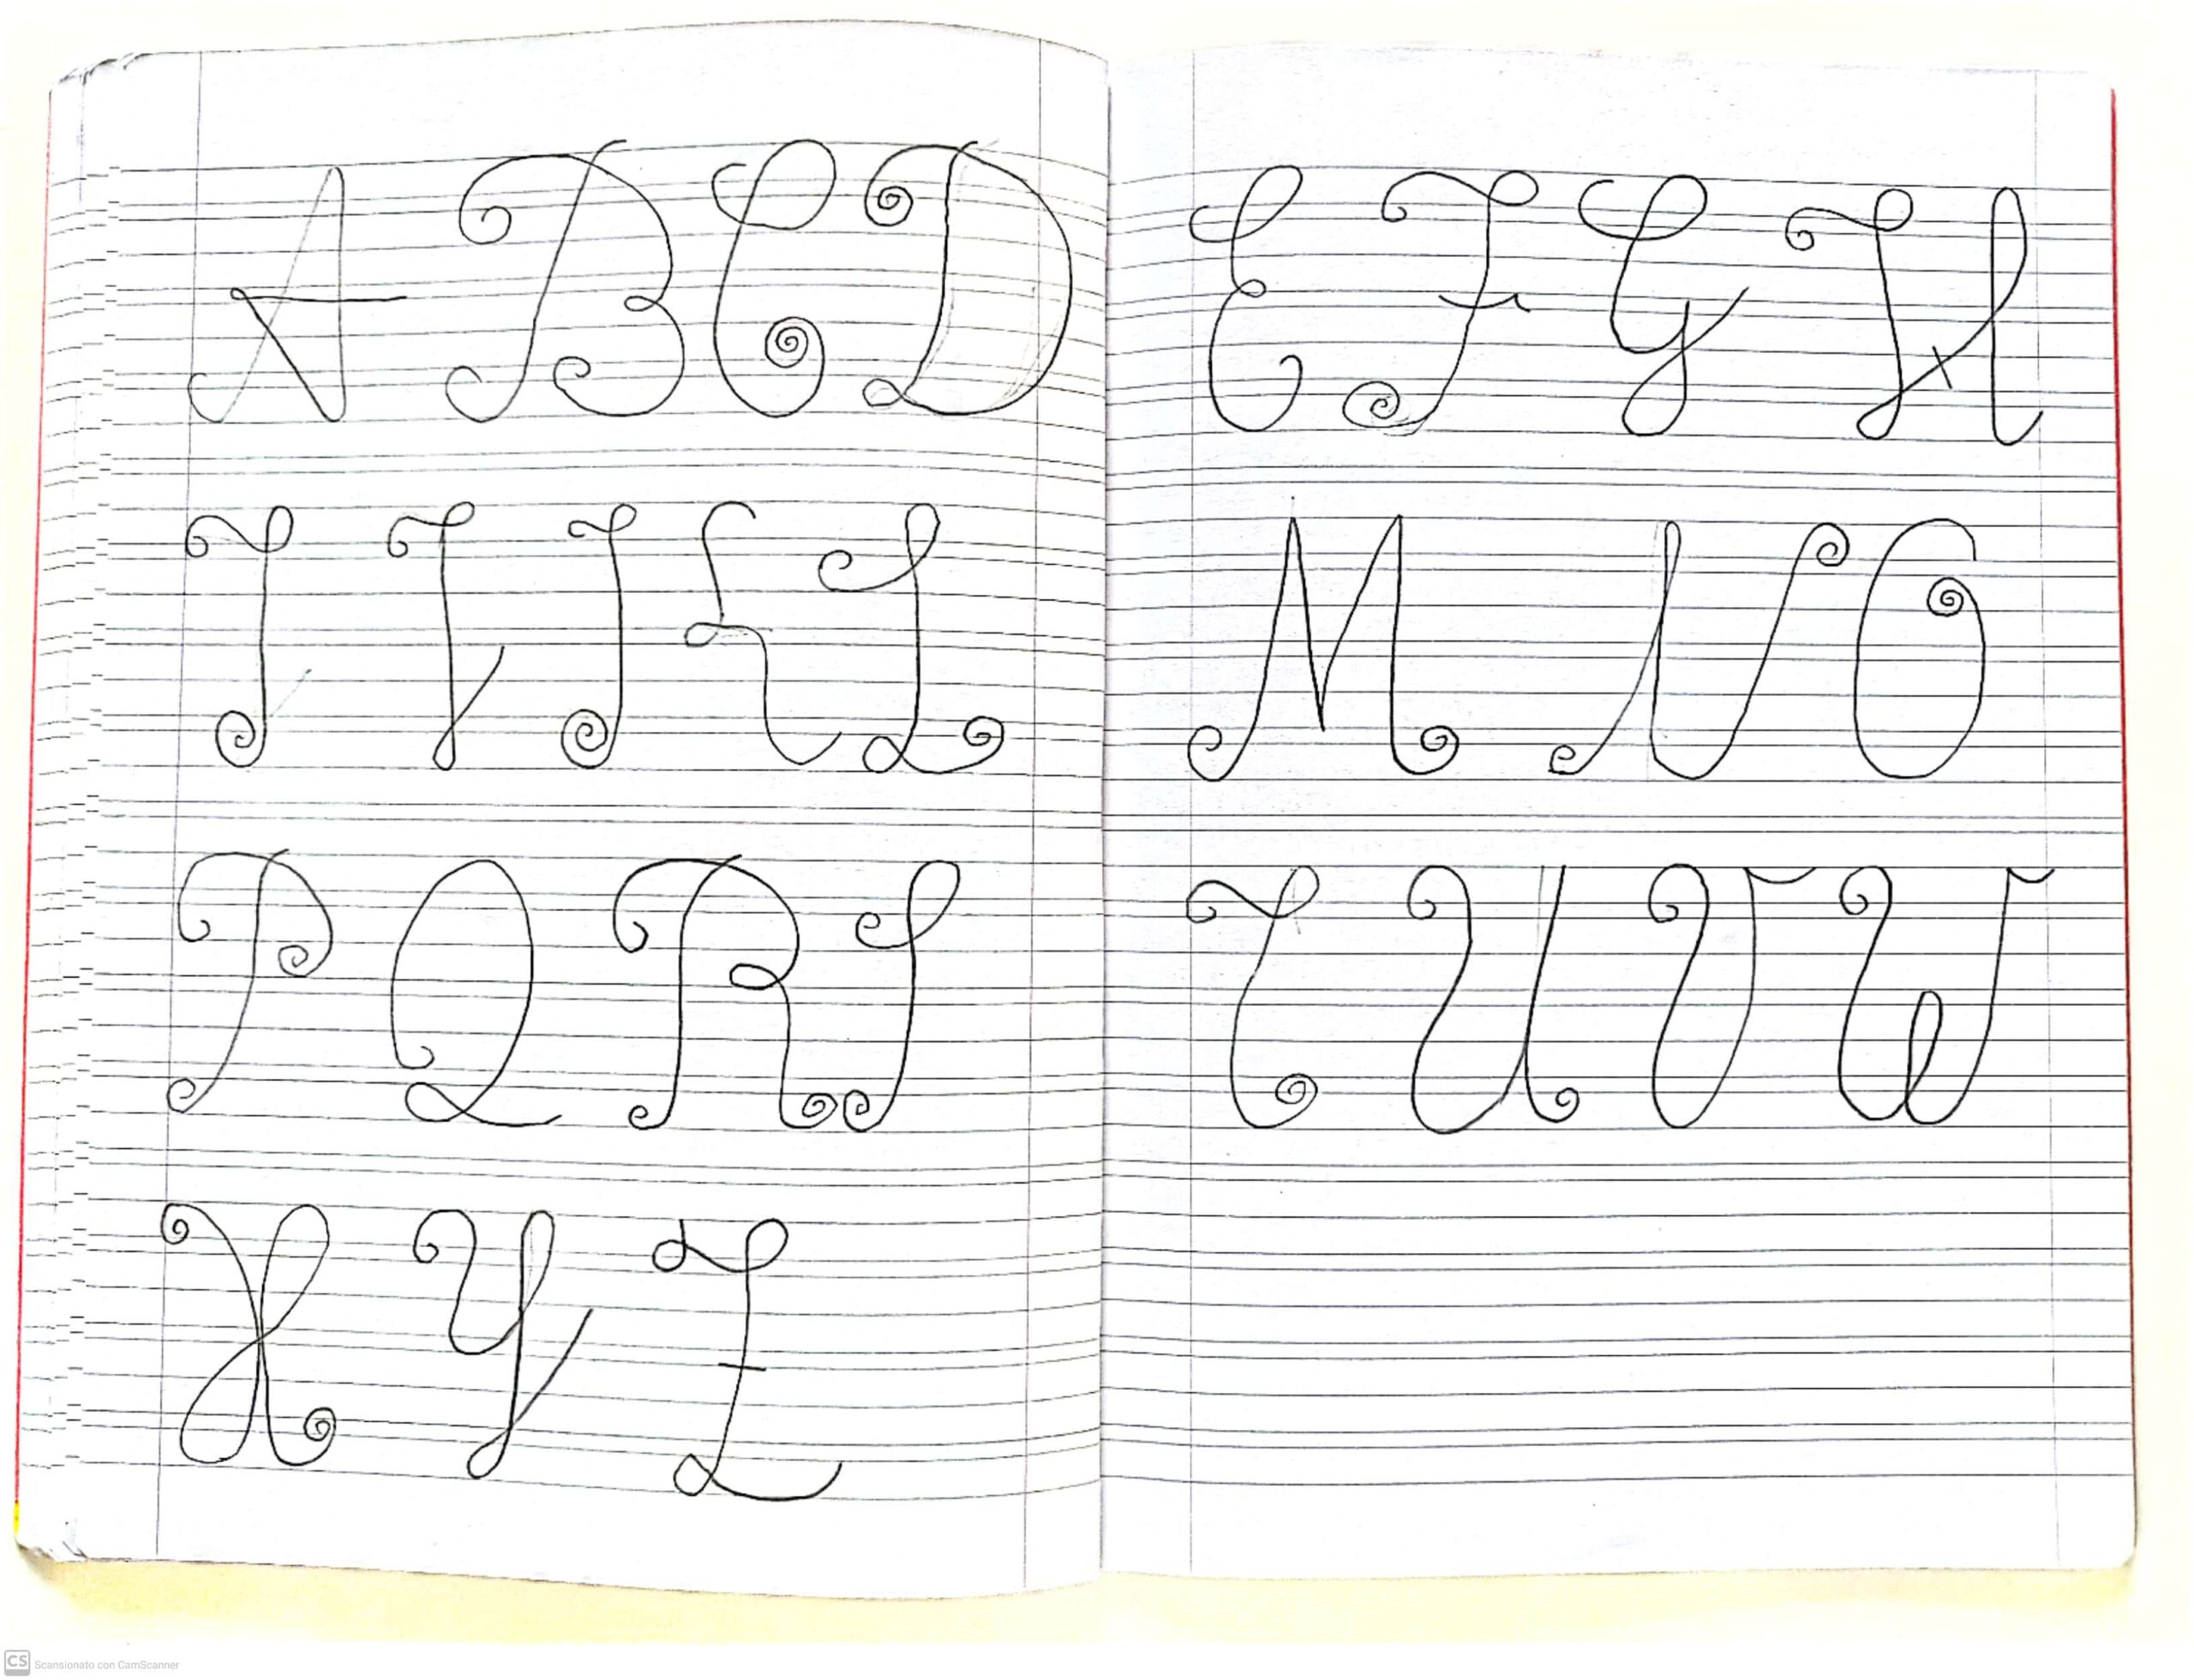 A B C D E F G H
I J K L M N O
P Q R S T U V W
X Y Z
CS Scansionato con CamScanner